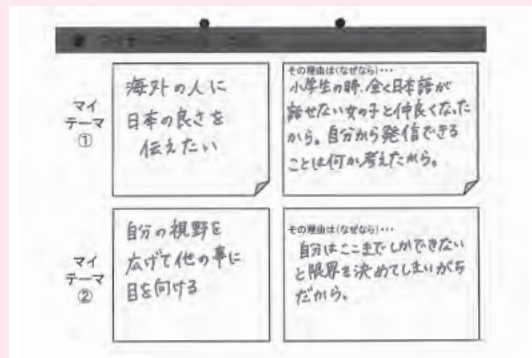 マイ
テーマ
①
海外の人に
日本の良さを
伝えたい
その理由は(なぜなら)…
小学生の時、全く日本語が
話せない女の子と仲良くなった
から。自分から発信できる
ことは何か考えたから。
マイ
テーマ
②
自分の視野を
広げて他の事に
目を向ける
その理由は(なぜなら)…
自分はここまでしかできない
と限界を決めてしまいがち
だから。